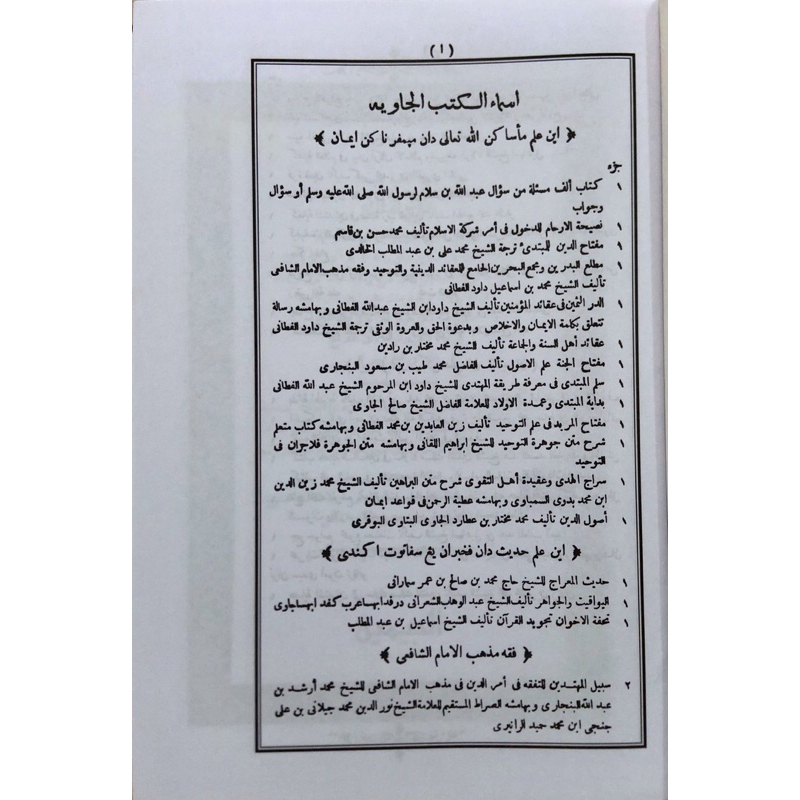 (١)
اسماء الكتب الجاويه
﴿ اين علم مأساكن الله تعالى دان ميمفرناكن ايمان ﴾
جزء
١ كتاب ألف مسئلة من سؤال عبد الله بن سلام لرسول الله صلى الله عليه وسلم أو سؤال
وجواب
١ نصيحة الارحام للدخول فى أمر شركة الاسلام تأليف محمد حسن بن قاسم
١ مفتاح الدين للمبتدئ ترجمة الشيخ محمد على بن عبد المطلب الخالدى
١ مطلع البدرين ومجمع البحرين الجامع للعقائد الدينية والتوحيد وفقه مذهب الامام الشافعى
تأليف الشيخ محمد بن اسماعيل داود الفطانى
١ الدر الثمين فى عقائد المؤمنين تأليف الشيخ داود ابن الشيخ عبدالله الفطانى وبهامشه رسالة
تتعلق بكلمة الايمان والاخلاص وبدعوة الحق والعروة الوثقى ترجمة الشيخ داود الفطانى
١ عقائد أهل السنة والجماعة تأليف الشيخ محمد مختار بن رادين
١ مفتاح الجنة علم الاصول تأليف الفاضل محمد طيب بن مسعود البنجارى
١ سلم المبتدى فى معرفة طريقة المهتدى للشيخ داود ابن المرحوم الشيخ عبد الله الفطانى
١ بداية المبتدى وعمدة الاولاد للعلامة الفاضل الشيخ صالح الجاوى
١ مفتاح المريد فى علم التوحيد تأليف زين العابدين بن محمد الفطانى وبهامشه كتاب متعلم
١ شرح متن جوهرة التوحيد للشيخ ابراهيم اللقانى وبهامشه متن الجوهرة فلاجران فى
التوحيد
١ سراج الهدى وعقيدة أهل التقوى شرح متن البراهين تأليف الشيخ محمد زين الدين
ابن محمد بدوى السمباوى وبهامشه عطية الرحمن فى قواعد ايمان
١ أصول الدين تأليف محمد مختار بن عطارد الجاوى البتاوى البوقرى
﴿ اين علم حديث دان فخبران يغ سفاتوت اكندى ﴾
١ حديث المعراج للشيخ حاج محمد بن صالح بن عمر سمارانى
١ اليواقيت والجواهر تأليف الشيخ عبد الوهاب الشعرانى درفد ابهاعرب كفد ابهساجاوى
١ تحفة الاخوان تجويد القرآن تأليف الشيخ اسماعيل بن عبد المطلب
﴿ فقه مذهب الامام الشافعى ﴾
٢ سبيل المهتدين للتفقه فى أمر الدين فى مذهب الامام الشافعى للشيخ محمد أرشد بن
عبد الله البنجارى وبهامشه الصراط المستقيم للعلامة الشيخ نور الدين محمد جيلانى بن على
جنجى ابن محمد حميد الرانيرى